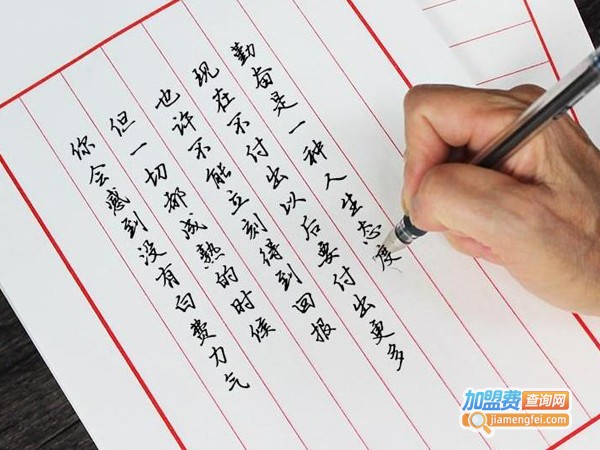 勤奋是一种人生态度
现在不付出以后要付出更多
也许不能立刻得到回报
但一切都成熟的时候
你会感到没有白费力气
加盟费查询网
jiamengfei.com